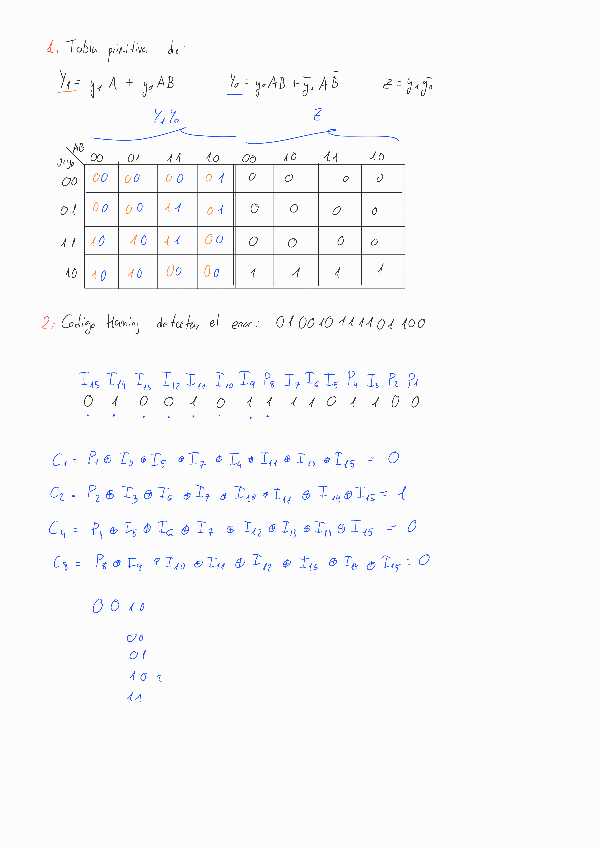 1. Tabla primitiva de:
Y₁ = y₁ A + y₀ AB Y₀ = y₀ AB + ȳ₁ A B̄ Z = y₁ ȳ₀
Y₁Y₀ Z
AB
y₁y₀ 00 01 11 10 00 10 11 10
00 00 00 00 01 0 0 0 0
01 00 00 11 01 0 0 0 0
11 10 10 11 00 0 0 0 0
10 10 10 00 00 1 1 1 1
2. Codigo Haming detectar el error: 010010111101100
I₁₅ I₁₄ I₁₃ I₁₂ I₁₁ I₁₀ I₉ P₈ I₇ I₆ I₅ P₄ I₃ P₂ P₁
0 1 0 0 1 0 1 1 1 1 0 1 1 0 0
C₁ = P₁ ⊕ I₃ ⊕ I₅ ⊕ I₇ ⊕ I₉ ⊕ I₁₁ ⊕ I₁₃ ⊕ I₁₅ = 0
C₂ = P₂ ⊕ I₃ ⊕ I₆ ⊕ I₇ ⊕ I₁₀ ⊕ I₁₁ ⊕ I₁₄ ⊕ I₁₅ = 1
C₄ = P₄ ⊕ I₅ ⊕ I₆ ⊕ I₇ ⊕ I₁₂ ⊕ I₁₃ ⊕ I₁₄ ⊕ I₁₅ = 0
C₈ = P₈ ⊕ I₉ ⊕ I₁₀ ⊕ I₁₁ ⊕ I₁₂ ⊕ I₁₃ ⊕ I₁₄ ⊕ I₁₅ = 0
0010
00
01
10
11